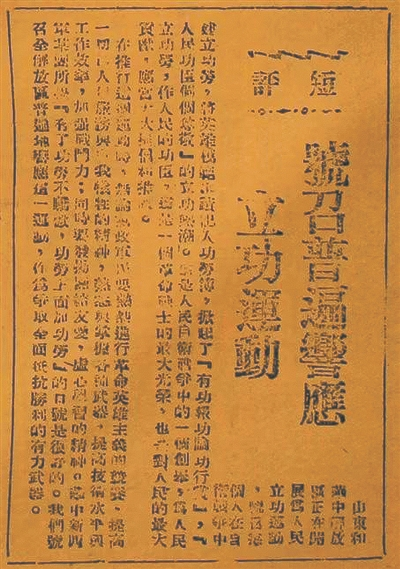 短評
號召普遍響應
立功運動
山東和
冀中解放
區正在開
展爲人民
立功運動
，號召
個人在自
衛戰爭中
建立功勞，當英雄模範，記人功勞簿，掀起了『有功報功論功行賞』，『
人民功臣個個尊敬』的立功熱潮。這是人民自衛戰爭中的一個創舉，爲人民
立功勞，作人民的功臣，這是一個革命戰士的最大光榮，也是對人民的最大
貢獻，應當大大提倡和推廣。
在推行這個運動時，無論黨政軍民要熱烈進行革命英雄主義的競賽，提高
一切人員服務與自我犧牲的精神，熟悉與掌握各種武器，提高技術水平與
工作效率，加強戰鬥力；同時要發揚團結友愛，虛心學習的精神。中新四
軍某團所提『有了功勞不驕傲，功勞上面加功勞』的口號是很好的。我們號
召全解放區普遍地響應這一運動，作爲爭取全面抵抗勝利的有力武器。